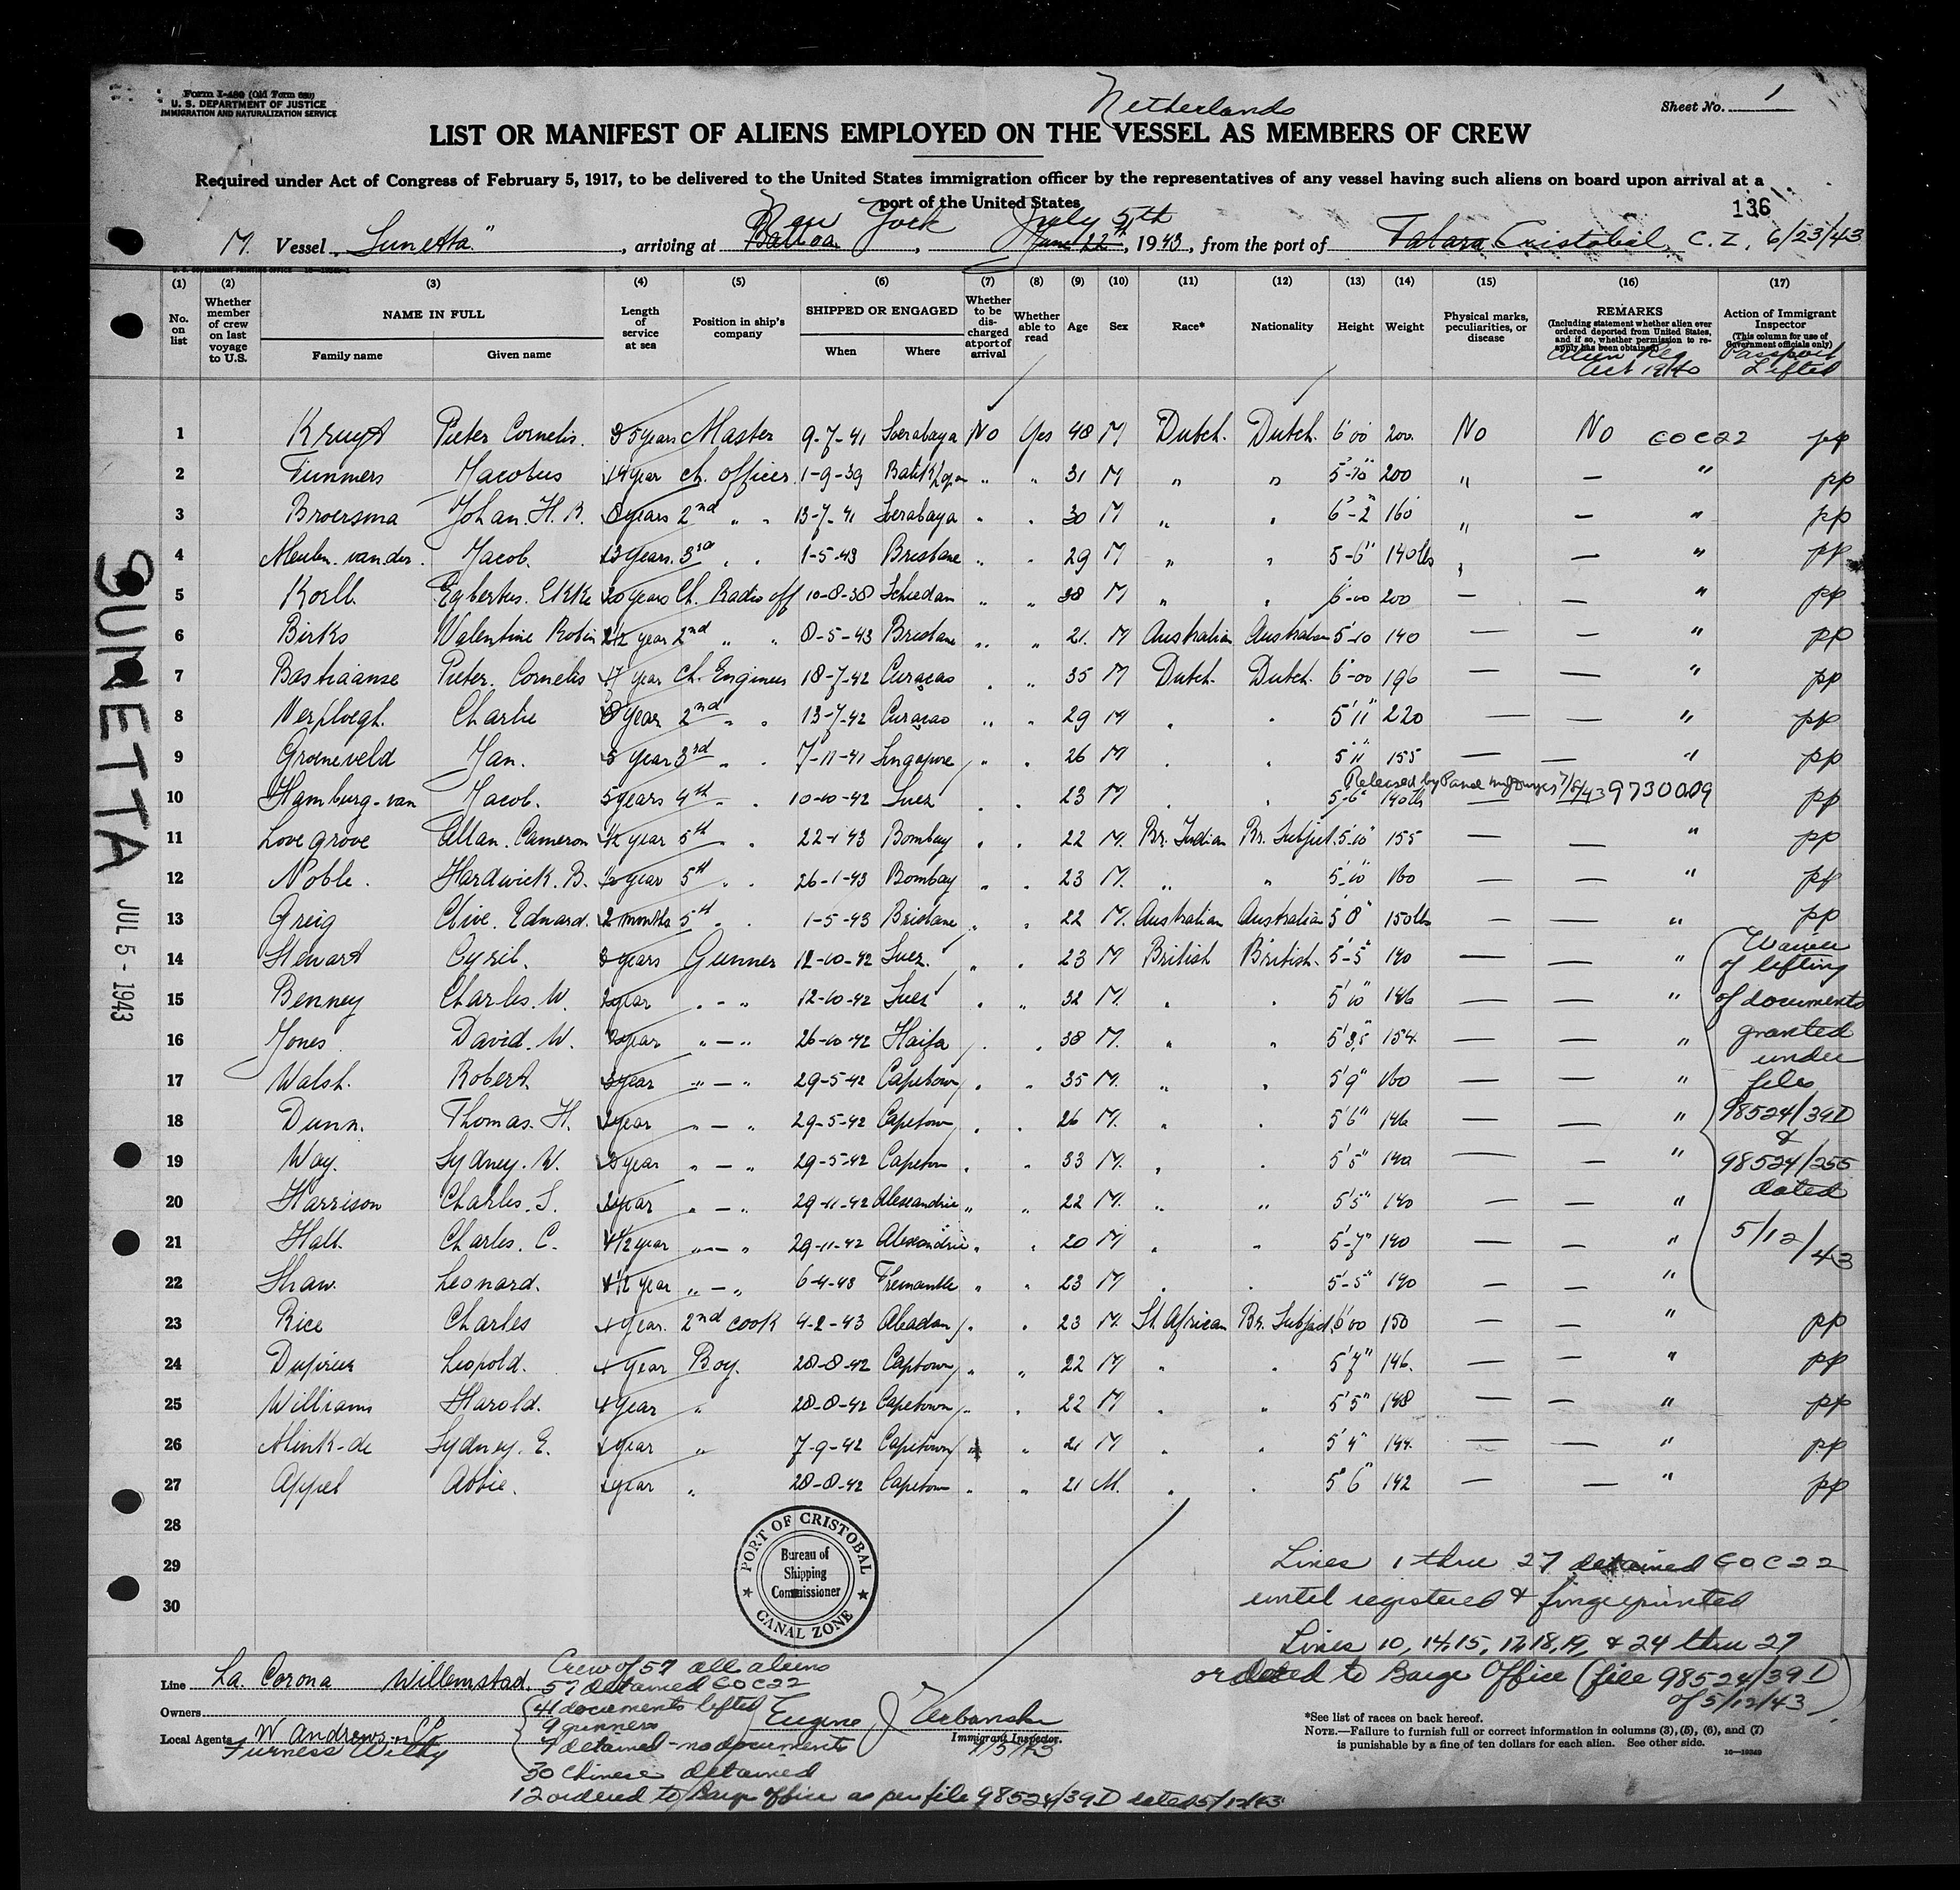 Form I-480 (Old Form 680)
U. S. DEPARTMENT OF JUSTICE
IMMIGRATION AND NATURALIZATION SERVICE
Netherlands
Sheet No. 1
LIST OR MANIFEST OF ALIENS EMPLOYED ON THE VESSEL AS MEMBERS OF CREW
Required under Act of Congress of February 5, 1917, to be delivered to the United States immigration officer by the representatives of any vessel having such aliens on board upon arrival at a
port of the United States
136
New York July 5th
M. Vessel "Sunetta", arriving at Balboa, June 22, 1943, from the port of Talara Cristobal, C. Z, 6/23/43
(1) (2) (3) (4) (5) (6) (7) (8) (9) (10) (11) (12) (13) (14) (15) (16) (17)
No. on list
Whether member of crew on last voyage to U.S.
NAME IN FULL
Family name Given name
Length of service at sea
Position in ship's company
SHIPPED OR ENGAGED
When Where
Whether to be discharged at port of arrival
Whether able to read
Age
Sex
Race*
Nationality
Height
Weight
Physical marks, peculiarities, or disease
REMARKS
(Including statement whether alien ever ordered deported from United States, and if so, whether permission to reapply has been obtained)
Alien Reg Act 1940
Action of Immigrant Inspector
(This column for use of Government officials only)
Passport Lifted
1 Kruyt Pieter Cornelis. 35 years Master 9-7-41 Soerabaya No Yes 48 M Dutch. Dutch. 6'00 200 No No COC22 pp
2 Tunmers Jacobus 14 year ch. officer 1-9-39 " " 31 M " " 5-10" 200 " — " pp
3 Broersma Johan. H. B. 8 years 2nd " " 13-7-41 Soerabaya " " 30 M " " 6'-2" 160 " — " pp
4 Meulen. van der. Jacob. 13 years. 3rd " " 1-5-43 Brisbane " " 29 M " " 5-6" 140 lbs " — " pp
5 Koell Egbertus. Ekke 20 years Ch. Radio off 10-8-38 Schiedam " " 38 M " " 6-00 200 — — " pp
6 Birks Valentine Robin 2 1/2 year 2nd " " 8-5-43 Brisbane " " 21. M Australian Australian 5'-10 140 — — " pp
7 Bastiaanse Pieter. Cornelis 17 year Ch. Engineer 18-7-42 Curaçao " " 35 M Dutch. Dutch. 6'-00 196 — — " pp
8 Verploegh. Charlie 8 year 2nd " " 13-7-42 Curaçao " " 29 M " " 5'11" 220 — — " pp
9 Groeneveld Jan. 5 year 3rd " " 7-11-41 Singapore " " 26 M " " 5'11" 155 — — " pp
Released by 7/5/43 9730009
10 Hamburg-van Jacob. 5 years 4th " " 10-10-42 Suez " " 23 M " " 5-6" 140 lb — pp
11 Lovegrove Allan. Cameron 1/2 year 5th " " 22-1-43 Bombay " " 22 M. Br. Indian Br. Subject. 5'-10" 155 — — " pp
12 Noble. Hardwick. B. 1/2 year 5th " " 26-1-43 Bombay " " 23 M. " " 5'-10" 160 — — " pp
13 Greig Clive. Edward. 2 months 5th " " 1-5-43 Brisbane " " 22 M. Australian Australian 5'8" 150 lbs — — " pp
14 Stewart Cyril. 3 years Gunner 12-10-42 Suez. " " 23 M British British. 5'-5" 140 — — "
15 Benney Charles. W. year " - " 12-10-42 Suez " " 32 M. " " 5'10" 146 — — "
16 Jones David. W. year " - " 26-10-42 Haifa " " 38 M. " " 5'3,5" 154 — — "
17 Walsh. Robert. 3 year " - " 29-5-42 Capetown " " 35 M. " " 5'9" 160 — — "
18 Dunn. Thomas. H. year " - " 29-5-42 Capetown " " 26 M. " " 5'6" 146 — — "
19 Way. Sydney. W. year " - " 29-5-42 Capetown " " 33 M. " " 5'5" 140 — — "
20 Harrison Charles. S. year " - " 29-11-42 Alexandrie " " 22 M. " " 5'5" 140 — — "
21 Hall. Charles. C. 1/2 year " - " 29-11-42 Alexandrie " " 20 M " " 5'-7" 140 — — "
22 Shaw. Leonard. 1/2 year " - " 6-4-43 Fremantle " " 23 M " " 5'-5" 140 — — "
23 Rice Charles year. 2nd cook 4-2-43 Abadan " " 23 M. St. African Br. Subject. 6'00 150 — — " pp
24 Leopold. year Boy. 28-8-42 Capetown " " 22 M " " 5'7" 146. — — " pp
25 Williams Harold. year " 28-8-42 Capetown " " 22 M " " 5'5" 148 — — " pp
26 Sydney. E. year " 7-9-42 Capetown " " 21 M " " 5'4" 144. — — " pp
27 Appel Abbie. year " 28-8-42 Capetown " " 21 M. " " 5'6" 142 — — " pp
28
29
30
Waiver
of lifting
of documents
granted
under
files
98524/39D
&
98524/255
dated
5/12/43
SUNETTA
JUL 5 - 1943
PORT OF CRISTOBAL
Bureau of
Shipping
Commissioner
CANAL ZONE
Lines 1 thru 27 detained COC22
until registered & fingerprinted
Lines 10, 14, 15, 17, 18, 19, & 24 thru 27
ordered to Barge Office (file 98524/39D
of 5/12/43)
Line La Corona Willemstad.
Owners
Local Agents W Andrews
Furness Withy
Crew of 57 all aliens
57 detained COC22
41 documents lifted
9 gunners
7 detained - no documents
30 Chinese detained
12 ordered to Barge office as per file 98524/39D dated 5/12/43
Eugene J Urbanski
Immigrant Inspector.
7/5/43
*See list of races on back hereof.
NOTE.—Failure to furnish full or correct information in columns (3), (5), (6), and (7)
is punishable by a fine of ten dollars for each alien. See other side.